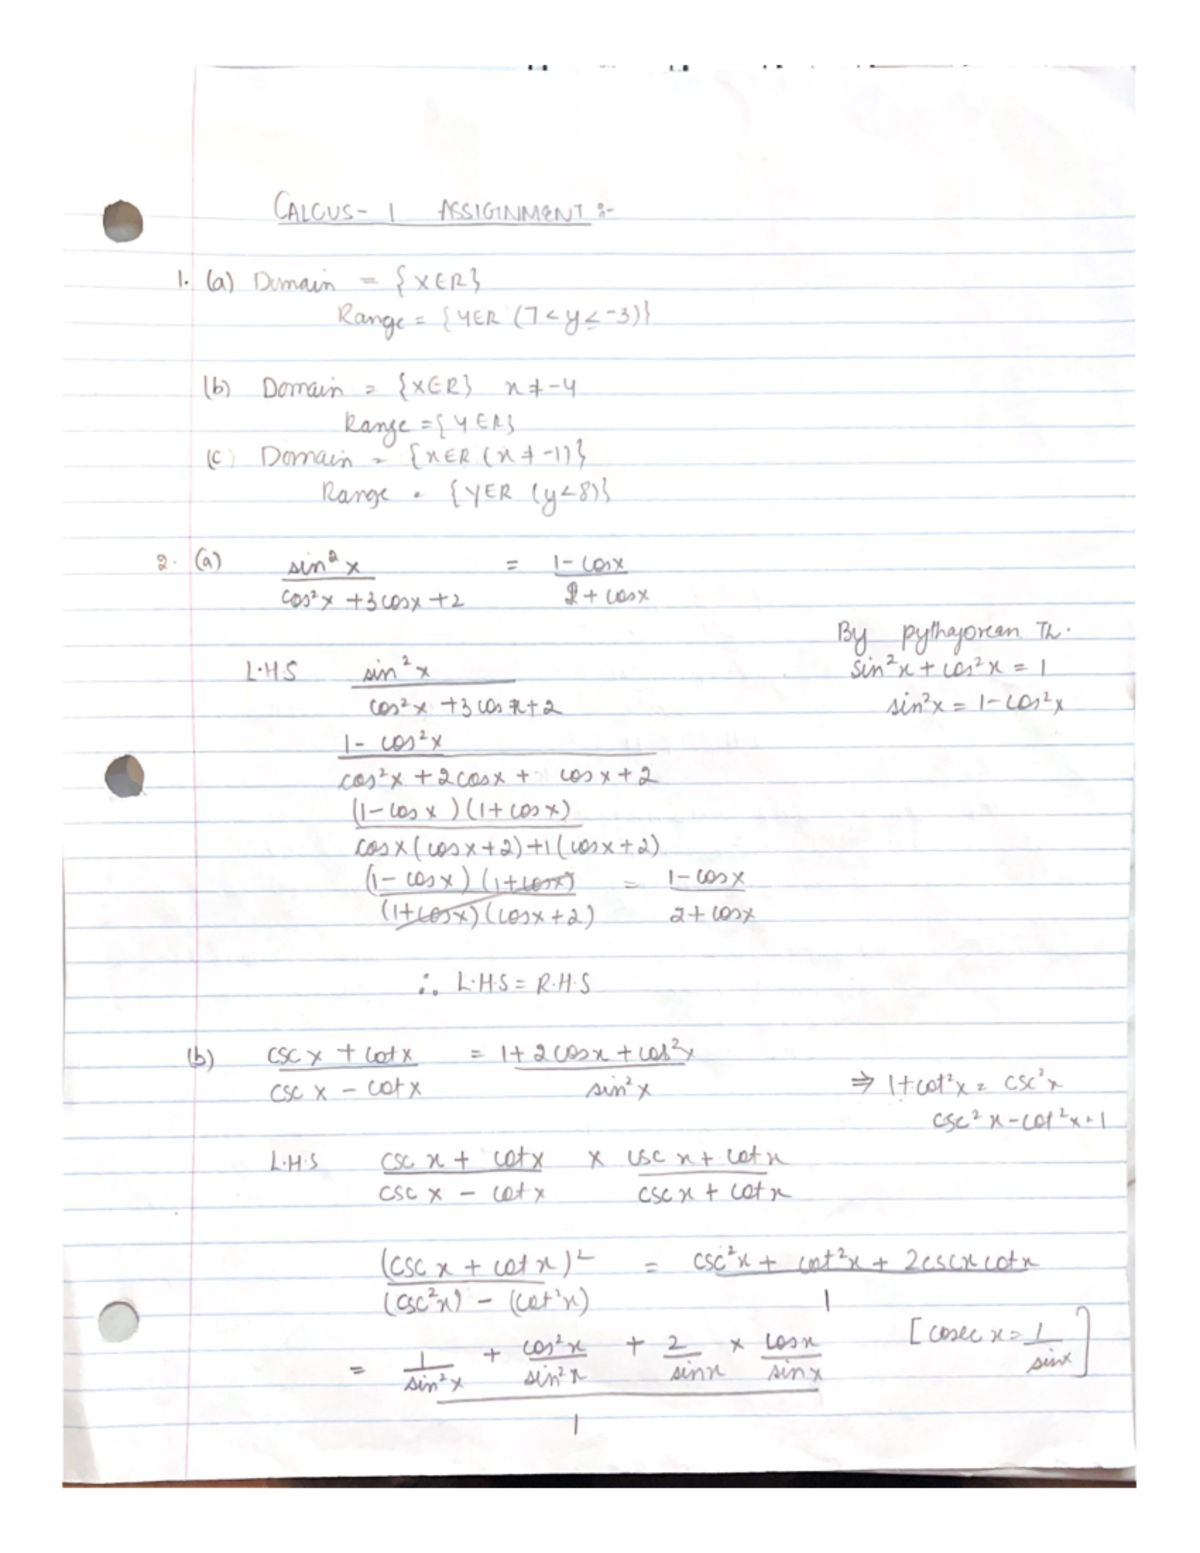 CALCUS- 1 ASSIGNMENT :-
1. (a) Domain = {XER}
Range = {YER (7 < y ≤ -3)}
(b) Domain = {XER} x ≠ -4
Range = {YER}
(c) Domain = {xER (x ≠ -1)}
Range = {YER (y<8)}
2. (a) sin²x / cos²x + 3cosx + 2 = 1 - cosx / 2 + cosx
By pythagorean Th.
L.H.S sin²x / cos²x + 3cosx + 2
sin²x + cos²x = 1
sin²x = 1 - cos²x
1 - cos²x / cos²x + 2cosx + cosx + 2
(1 - cosx)(1 + cosx) / cosx(cosx+2)+1(cosx+2)
(1 - cosx)(1+cosx) / (1+cosx)(cosx+2) = 1 - cosx / 2 + cosx
∴ L.H.S = R.H.S
(b) csc x + cotx / csc x - cotx = 1 + 2cosx + cos²x / sin²x
⇒ 1+cot²x = csc²x
csc²x - cot²x = 1
L.H.S csc x + cotx / csc x - cotx × csc x + cotx / csc x + cotx
(csc x + cotx)² / (csc²x) - (cot²x) = csc²x + cot²x + 2cscxcotx / 1
= 1/sin²x + cos²x/sin²x + 2/sinx × cosx/sinx / 1 [cosec x = 1/sinx]